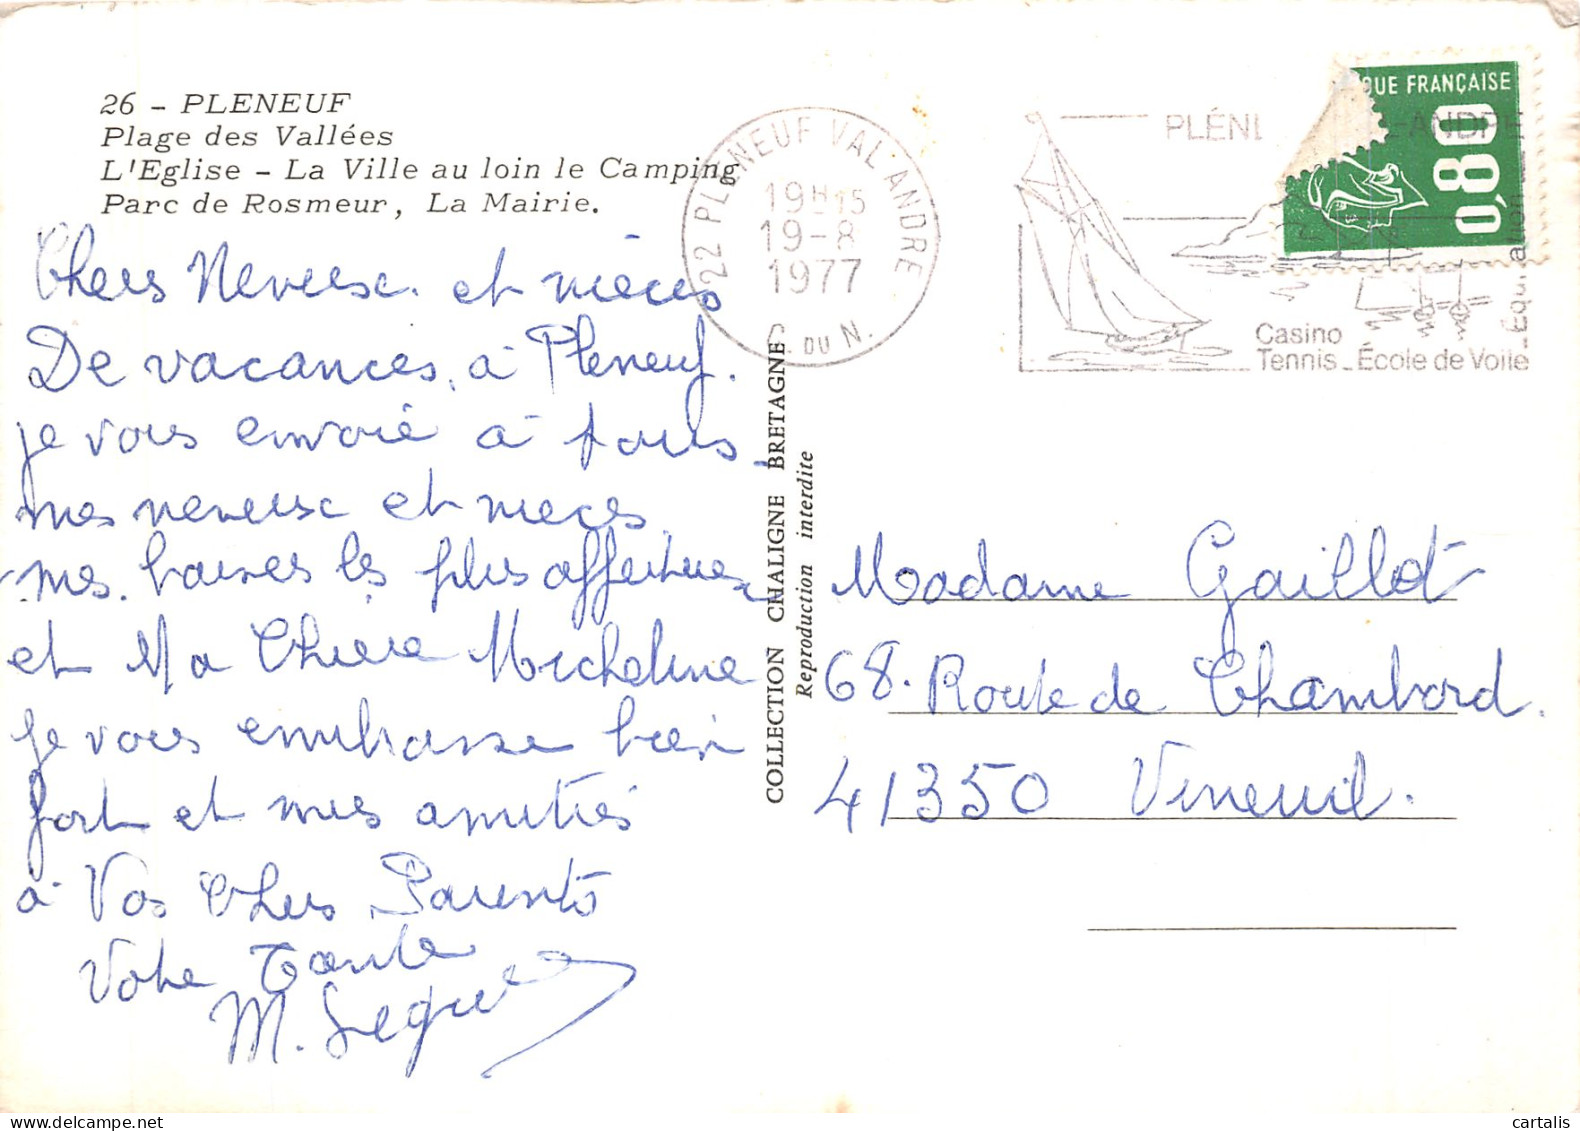 26 - PLENEUF
Plage des Vallées
L'Eglise - La Ville au loin le Camping
Parc de Rosmeur, La Mairie.
Chers Neveux et nièces
De vacances, à Pleneuf.
je vous envoie à tous
mes neveux et nieces
mes baises les plus affectueux
et Ma Chère Micheline
je vous embrasse bien
fort et mes amitiés
à Vos Chers Parents
Votre Tante
M.
22 PLENEUF VAL ANDRE
19H15
19-8
1977
C. DU N.
PLÉN
-ANDRE
Casino
Tennis - École de Voile
Équitation
QUE FRANÇAISE
0,80
COLLECTION CHALIGNE BRETAGNE
Reproduction interdite
Madame Gaillot
68. Route de Chambord.
41350 Vineuil.
cartalis